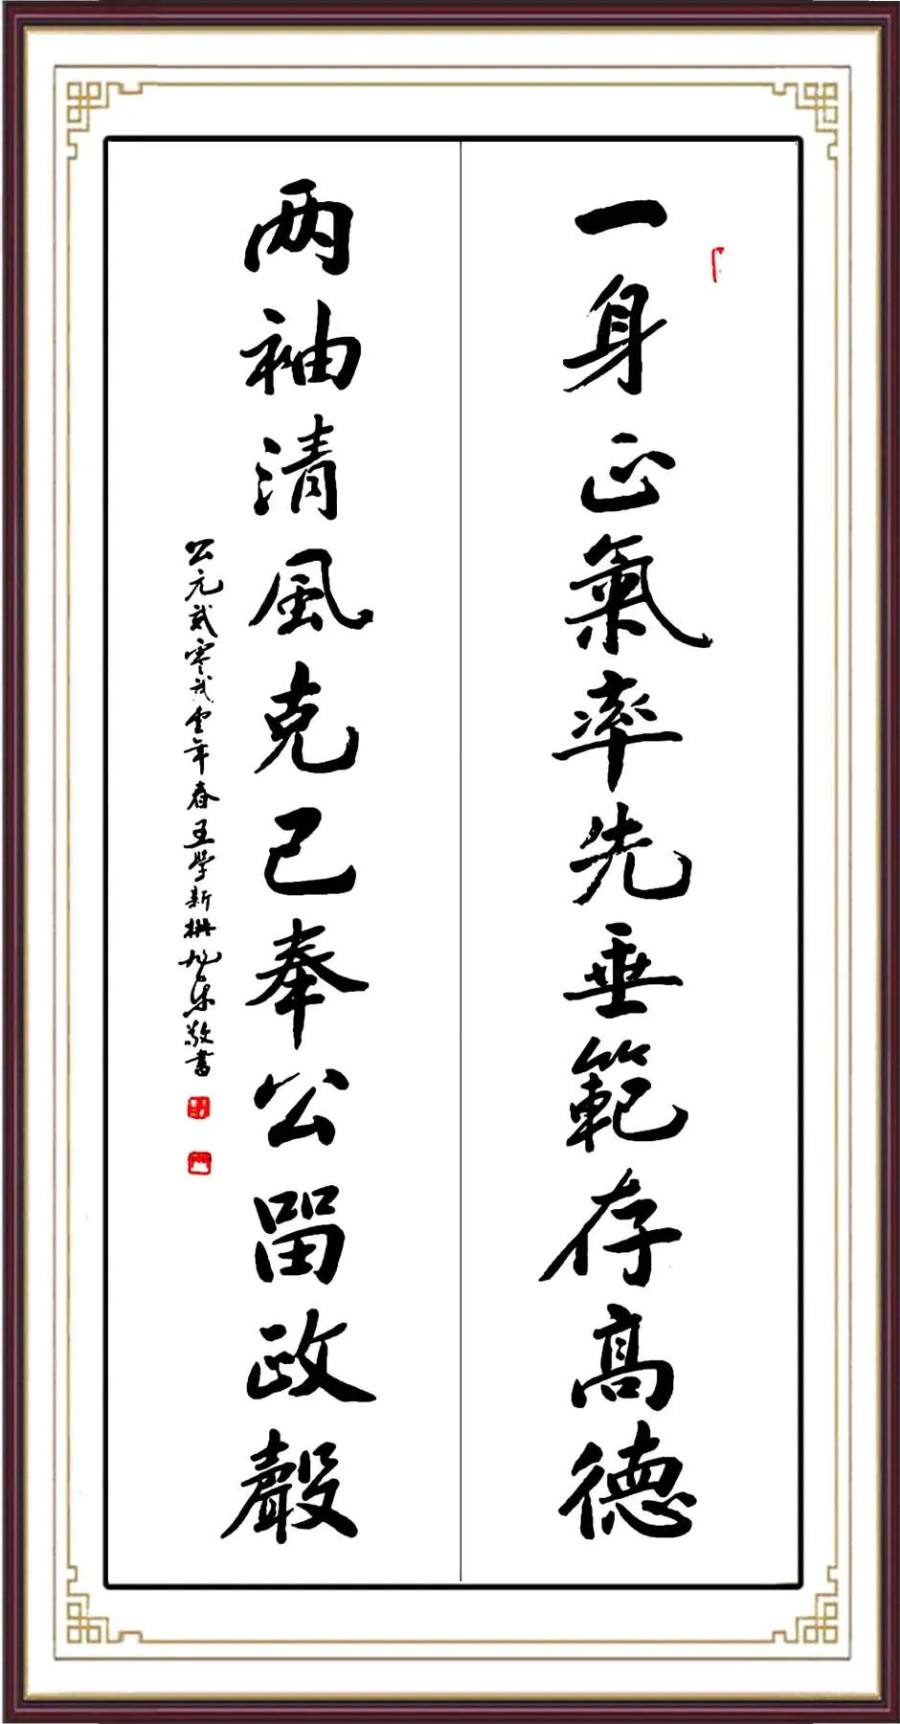 一身正氣率先垂範存高德
两袖清風克己奉公留政聲
公元貳零貳年春王学新撰敬書